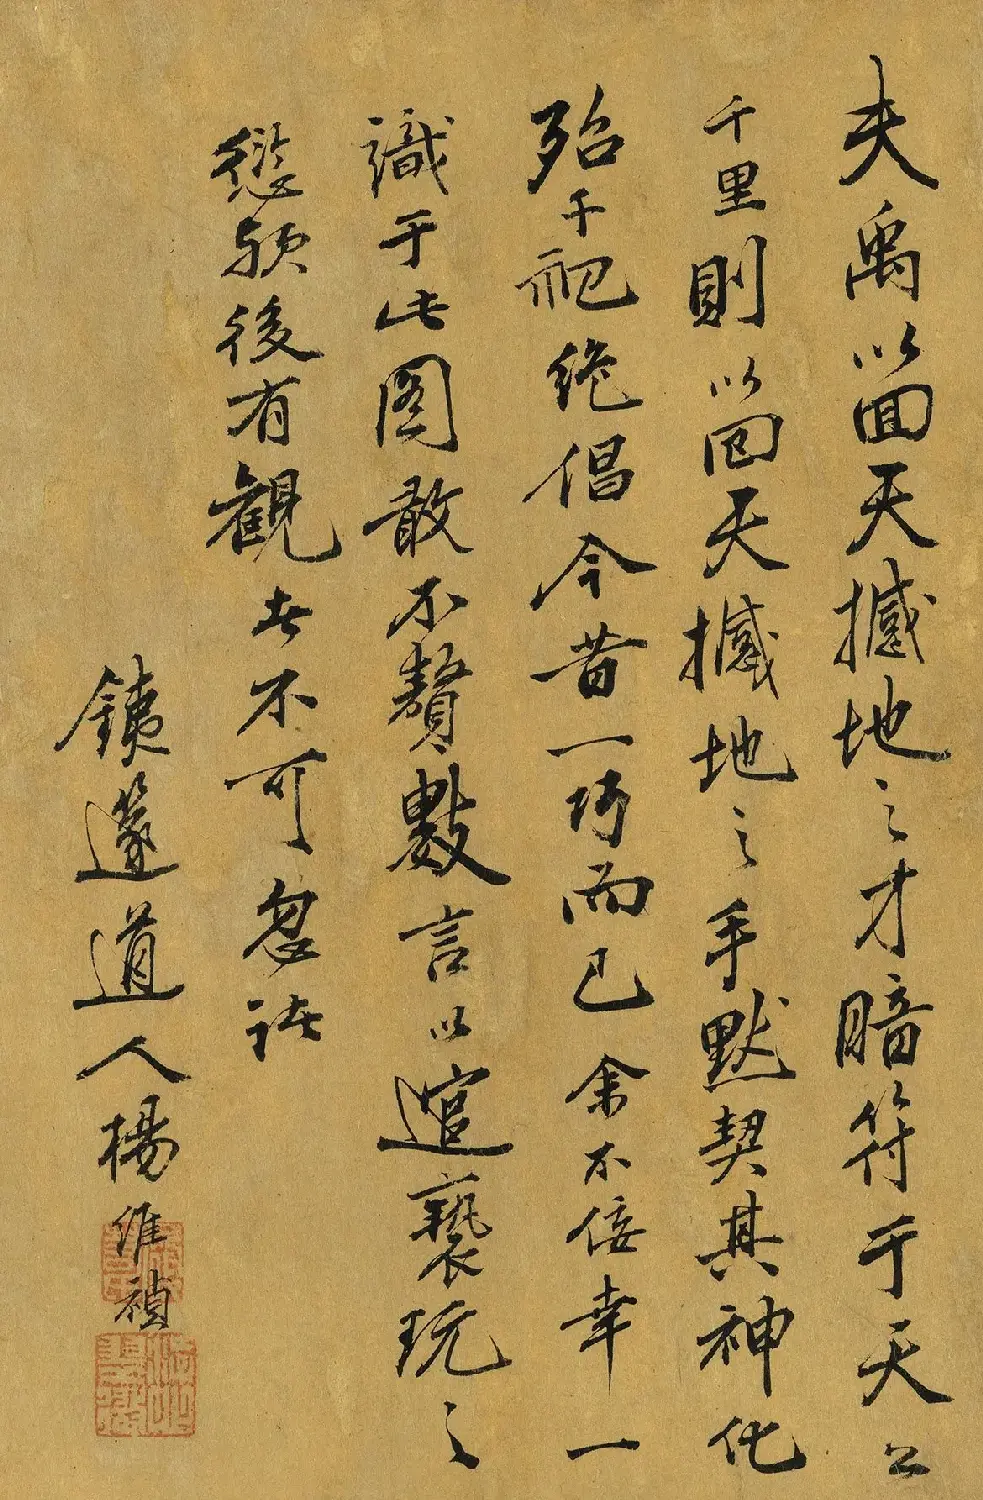 夫禹以回天撼地之才暗符于天公
千里則以回天撼地之手默契其神化
殆千祀絶倡今昔一巧而已余不佞幸一
識于此圖敢不贅數言以逭褻玩之
愆願後有觀者不可忽諸
鐵篴道人楊維禎